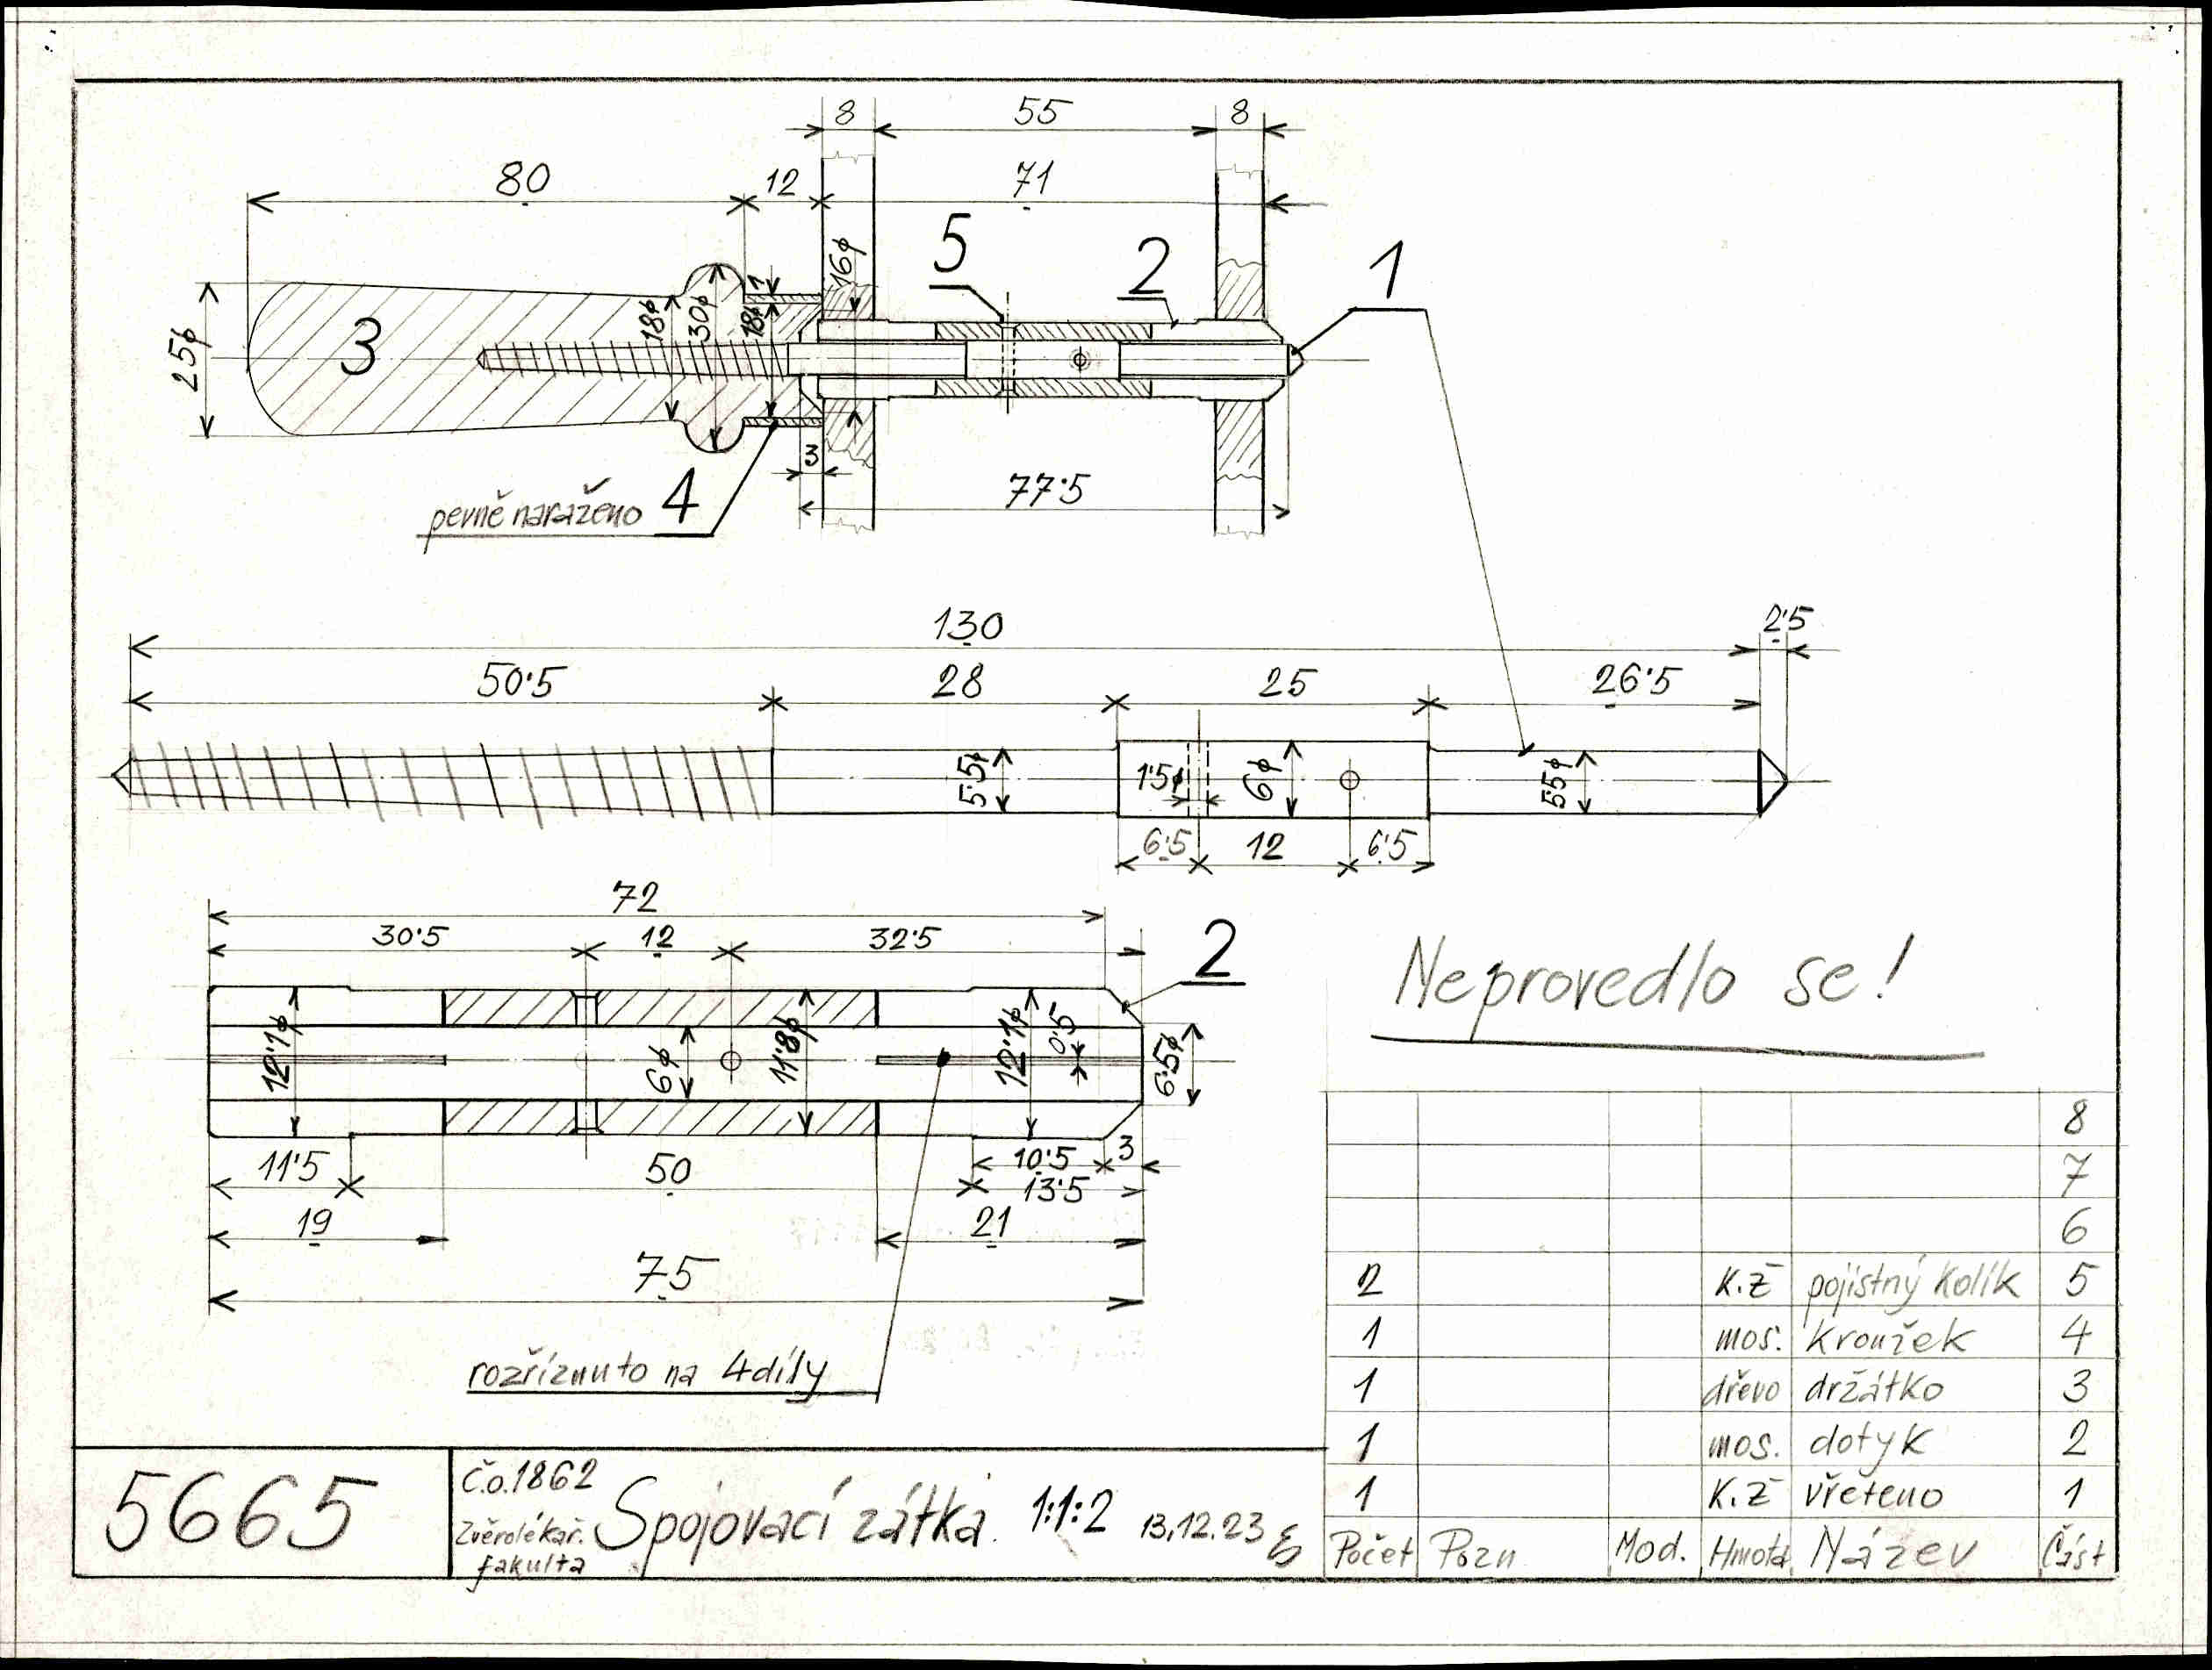 8 55 8
80 12 71
5 2 1
16ϕ
25ϕ 3 18ϕ 30ϕ 1 18ϕ
3
77·5
pevně naraženo 4
130 2·5
50·5 28 25 26·5
5·5ϕ 1·5ϕ 6ϕ 5·5ϕ
6·5 12 6·5
72
30·5 12 32·5 2
12·1ϕ 6ϕ 11·8ϕ 12·1ϕ 0·5 6·5ϕ
11·5 50 10·5 3
13·5
19 21
75
rozříznuto na 4 díly
Neprovedlo se!
8
7
6
2 K.ž pojistný kolík 5
1 mos. kroužek 4
1 dřevo držátko 3
1 mos. dotyk 2
1 K.ž vřeteno 1
Počet Pozn Mod. Hmota Název Část
5665
Č.o.1862
Zvěrolékař.
fakulta
Spojovací zátka. 1:1:2 13.12.23